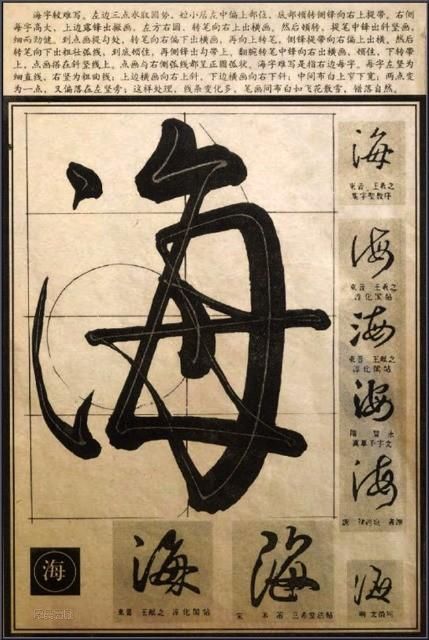 海字较难写。左边三点水取圆势，短小居左中偏上部位，底部顿转侧锋向右上提带。右侧
每字高大，上边露锋出撇画，左方右圆，转笔向右上出横画，然后顿转，提笔中锋出斜竖画，
细而劲健，到点画提勾处，转笔向右偏下出横画，再向上转笔，侧锋提带向右偏上出横，然后
转笔向下出粗壮弧线，到底顿住，再侧锋出勾带上，翻腕转笔中锋向右上出横画，顿住，下转带
上，点画搭在斜竖线上，点画与右侧弧线都呈正圆弧状。海字难写是指右边每字。每字左竖为
细直线，右竖为粗曲线；上边横画向右上斜，下边横画向右下斜；中间布白上窄下宽；两点变
为一点，又偏落在左竖旁；这样处理，线条变化多，笔画间布白如飞花散雪，错落自然。
海
海
東晋 王羲之
集字聖教序
海
東晋 王羲之
淳化閣帖
海
東晋 王献之
淳化閣帖
海
隋 智永
真草千字文
海
海
海
東晋 王献之 淳化閣帖
海
宋 米芾 三希堂法帖
海
明 文徵明
海